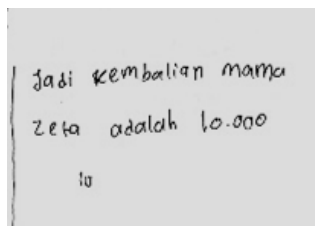 Jadi kembalian mama
Zeta adalah 10.000
10